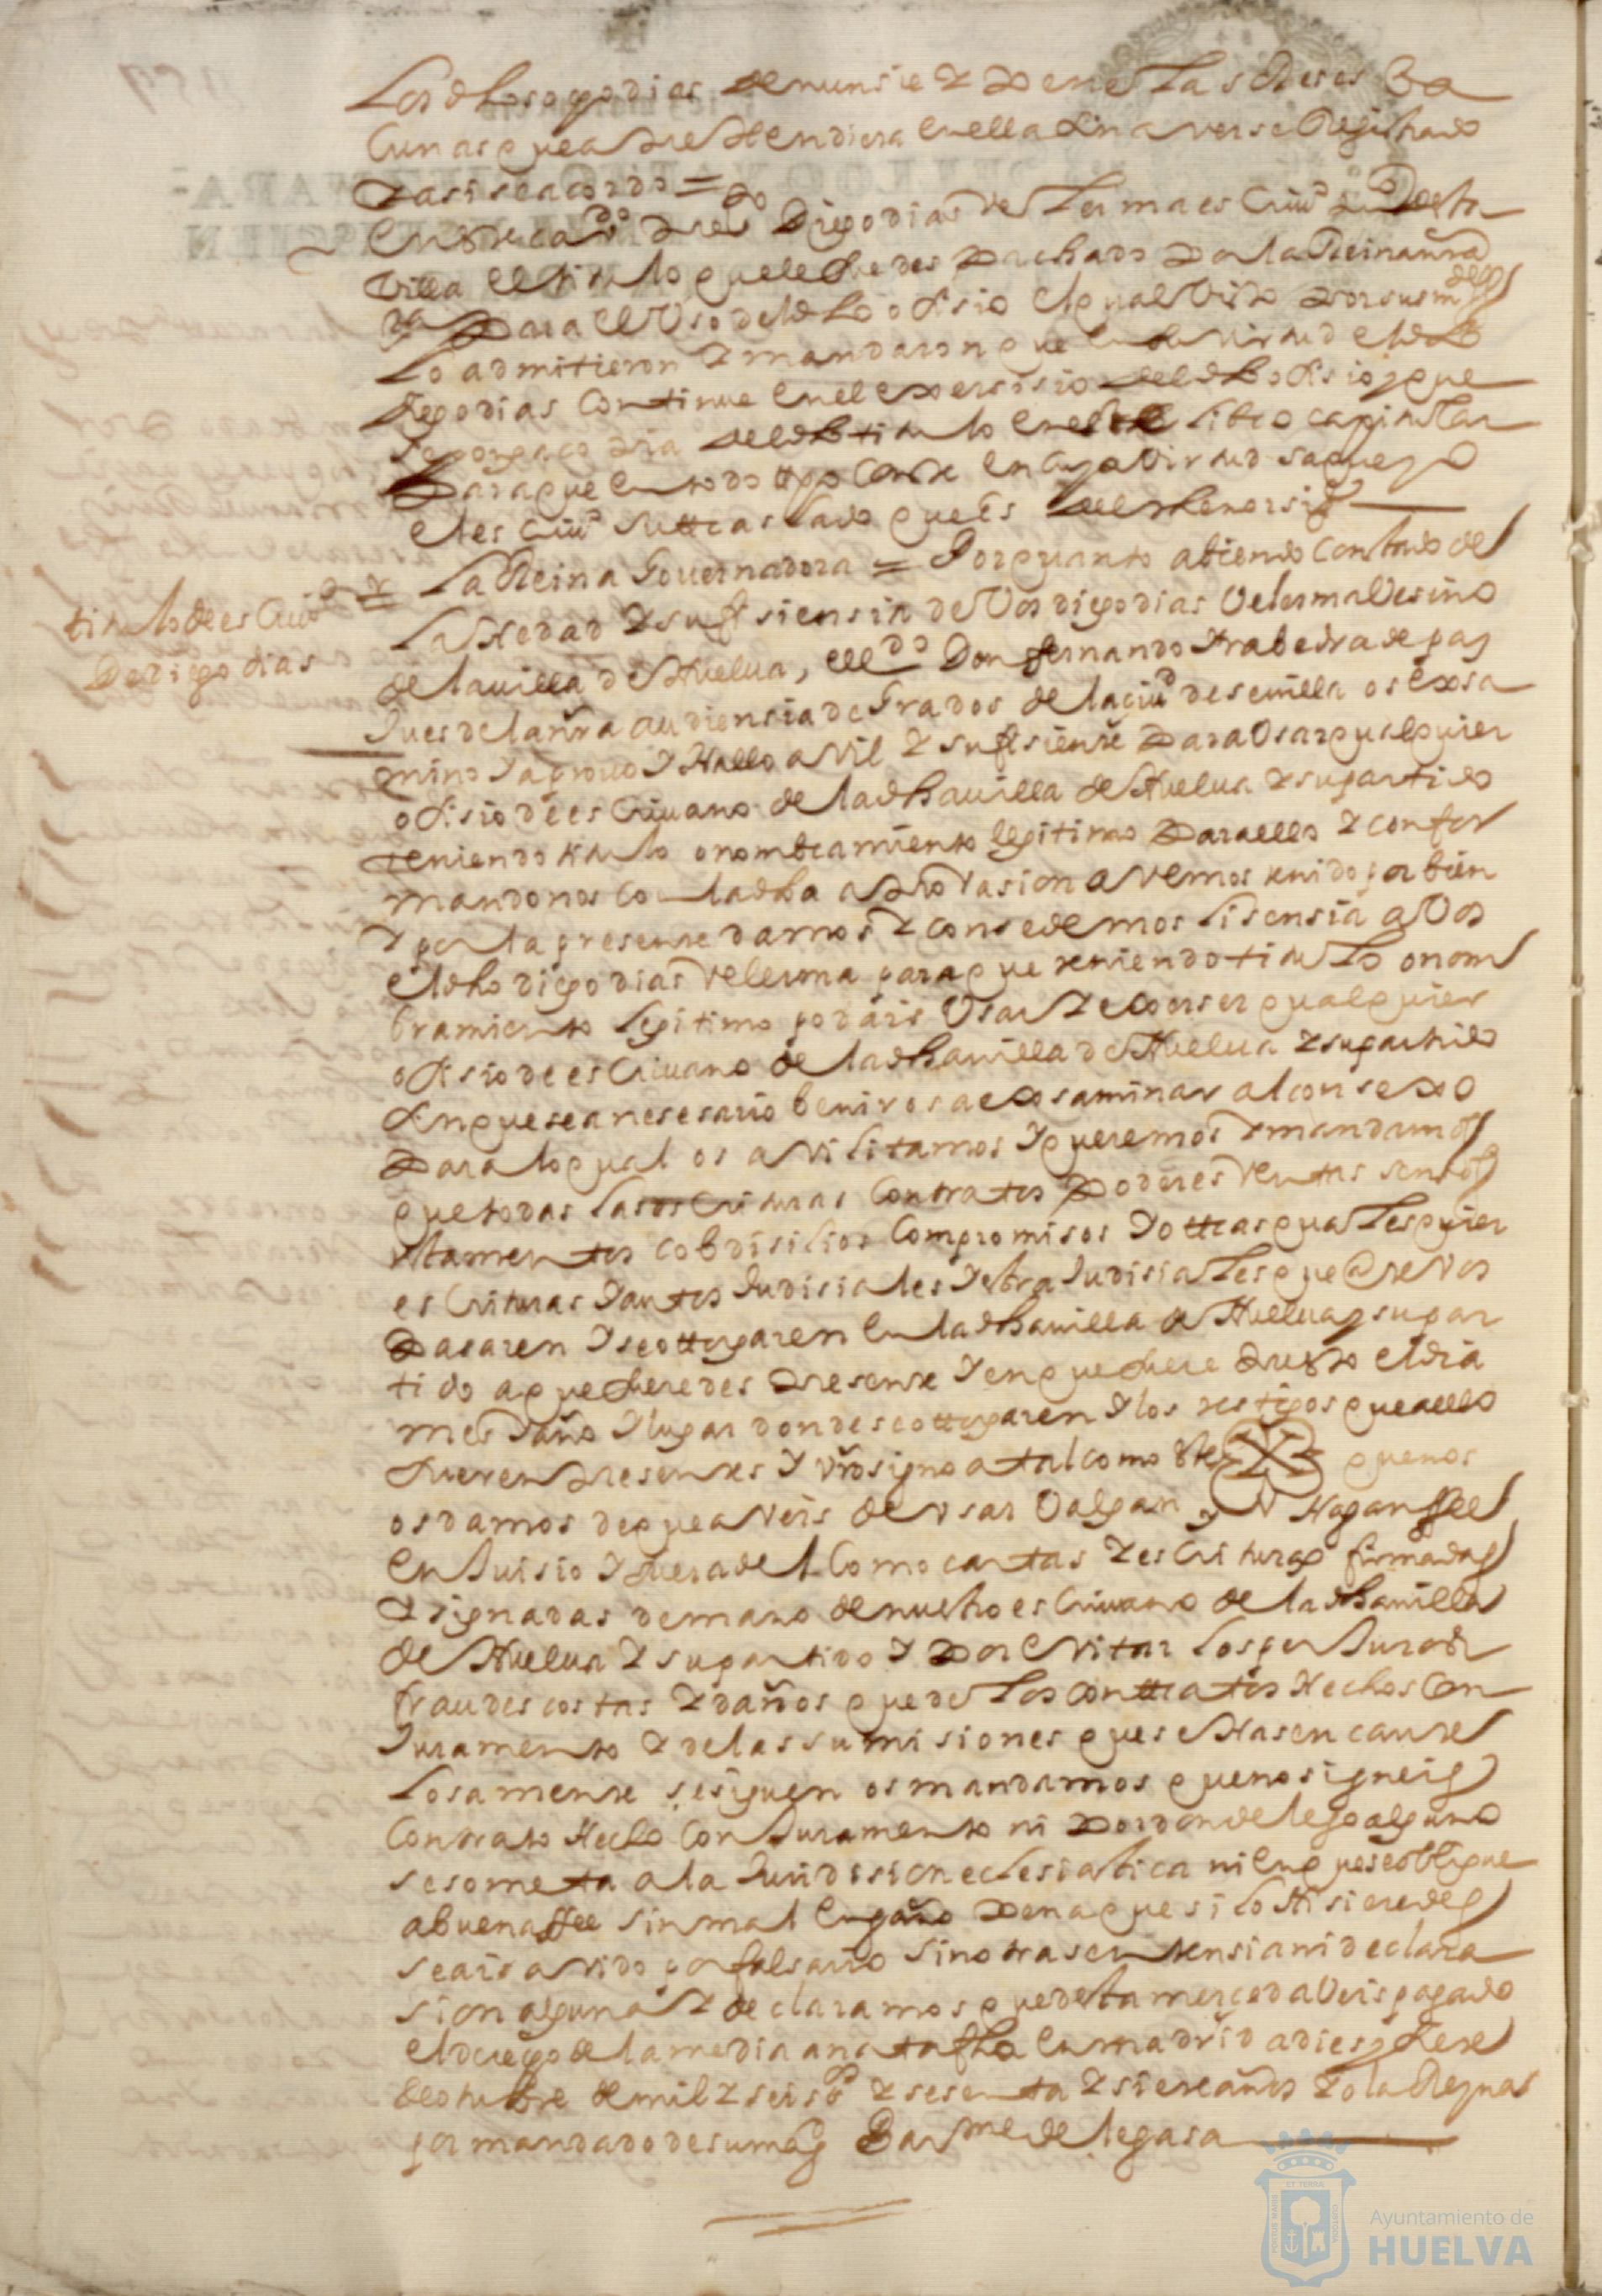 Los dhos ocho dias denunsie y pene las Reses Ba
Cunas que aprehendiera en ella sin averse Registrado
y asi se acordo =
En este cavdo preso Diego dias de Lerma escriuo pco desta
villa el titulo que le fue despachado por la Reina nra
sra para el Uso del dho ofisio el qual visto por sus mdes
Lo admitieron y mandaron que en su virtud el dho
diego dias Continue en el exersisio del dho ofisio y que
se ponga copia del dho titulo en este libro capitular
Para que en todo tpo Conste en cuya virtud saque yo
el escriuo su traslado que es del thenor sigte
titulo de escriuo
De diego dias
La Reina Gouernadora = Por quanto abiendo Constado de
La Hedad y sufisiensia de Vos diego dias de lerma Vesino
de la villa de Huelua, el Ldo Don fernando
Jues de la nra audiensia de Grados de la ciud de seuilla os exsa
mino y aprouo y Hallo avil y sufisiente Para Usar qualquier
ofisio de escriuano de la dha uilla de Huelua y su partido
teniendo titulo o nombramiento legitimo Para ello y confor
mandonos con la dha aprovasion avemos tenido por bien
y por la presente damos y consedemos lisensia a Vos
el dho diego dias de lerma para que teniendo titulo o nom
bramiento legitimo podais Usar y exerser qualquier
ofisio de escriuano de la dha uilla de Huelua y su partido
sin que sea nesesario benir os a exsaminar al consexo
Para lo qual os avilitamos y queremos y mandamos
que todas las escrituras Contratos Poderes Ventas sensos
testamentos cobdisilios Compromisos y otras qualesquier
escrituras y autos Judisiales y extra Judisiales que ante Vos
Pasaren y se otorgaren en la dha uilla de Huelua y su par
tido a que fueredes presente y en que fuere puesto el dia
mes y año y lugar donde se otorgaren y los testigos que a ello
fueren presentes y vro signo a tal como este que nos
os damos de que aveis de usar Valgan y Hagan ffee
en Juisio y fuera del Como cartas y escrituras firmadas
y signadas de mano de nuestro escriuano de la dha uilla
de Huelua y su partido y Por evitar los perJuros
fraudes costas y daños que de los contratos Hechos Con
Juramento y de las sumisiones que se Hasen caute
losamente se siguen os mandamos que no signeis
Contrato Hecho Con Juramento ni Por donde lego alguno
se someta a la Juridision eclesiastica ni en que se obligue
a buena ffee sin mal engaño Pena que si lo Hisieredes
seais avido por falsario sin otra sentensia ni declara
sion alguna y declaramos que desta merced aveis pagado
el derecho de la media anata fha en madrid a dies y siete
de otubre de mil y seisos y sesenta y siete años Yo la Reyna
por mandado de su magd Barme de legasa
Ayuntamiento de
HUELVA